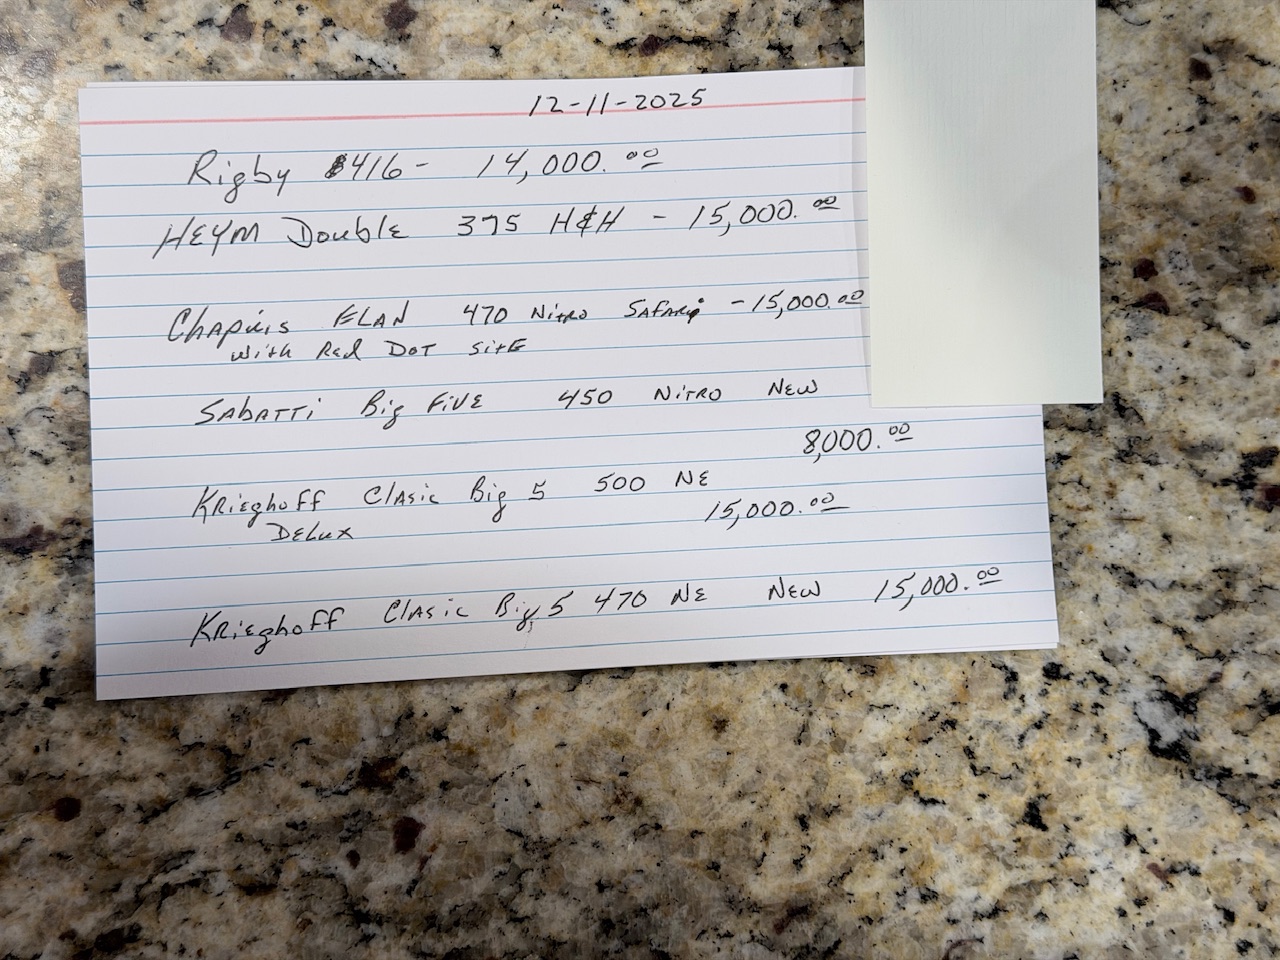 12-11-2025
Rigby 416- 14,000.00
HEYM Double 375 H&H - 15,000.00
Chapuis ELAN 470 Nitro Safari -15,000.00
with Red DOT SitE
SabATTi Big FiVE 450 NiTRO NEW
8,000.00
KRiEghoff ClAsic Big 5 500 NE
15,000.00
DELux
KRiEghoff ClAsic Big 5 470 NE NEW 15,000.00